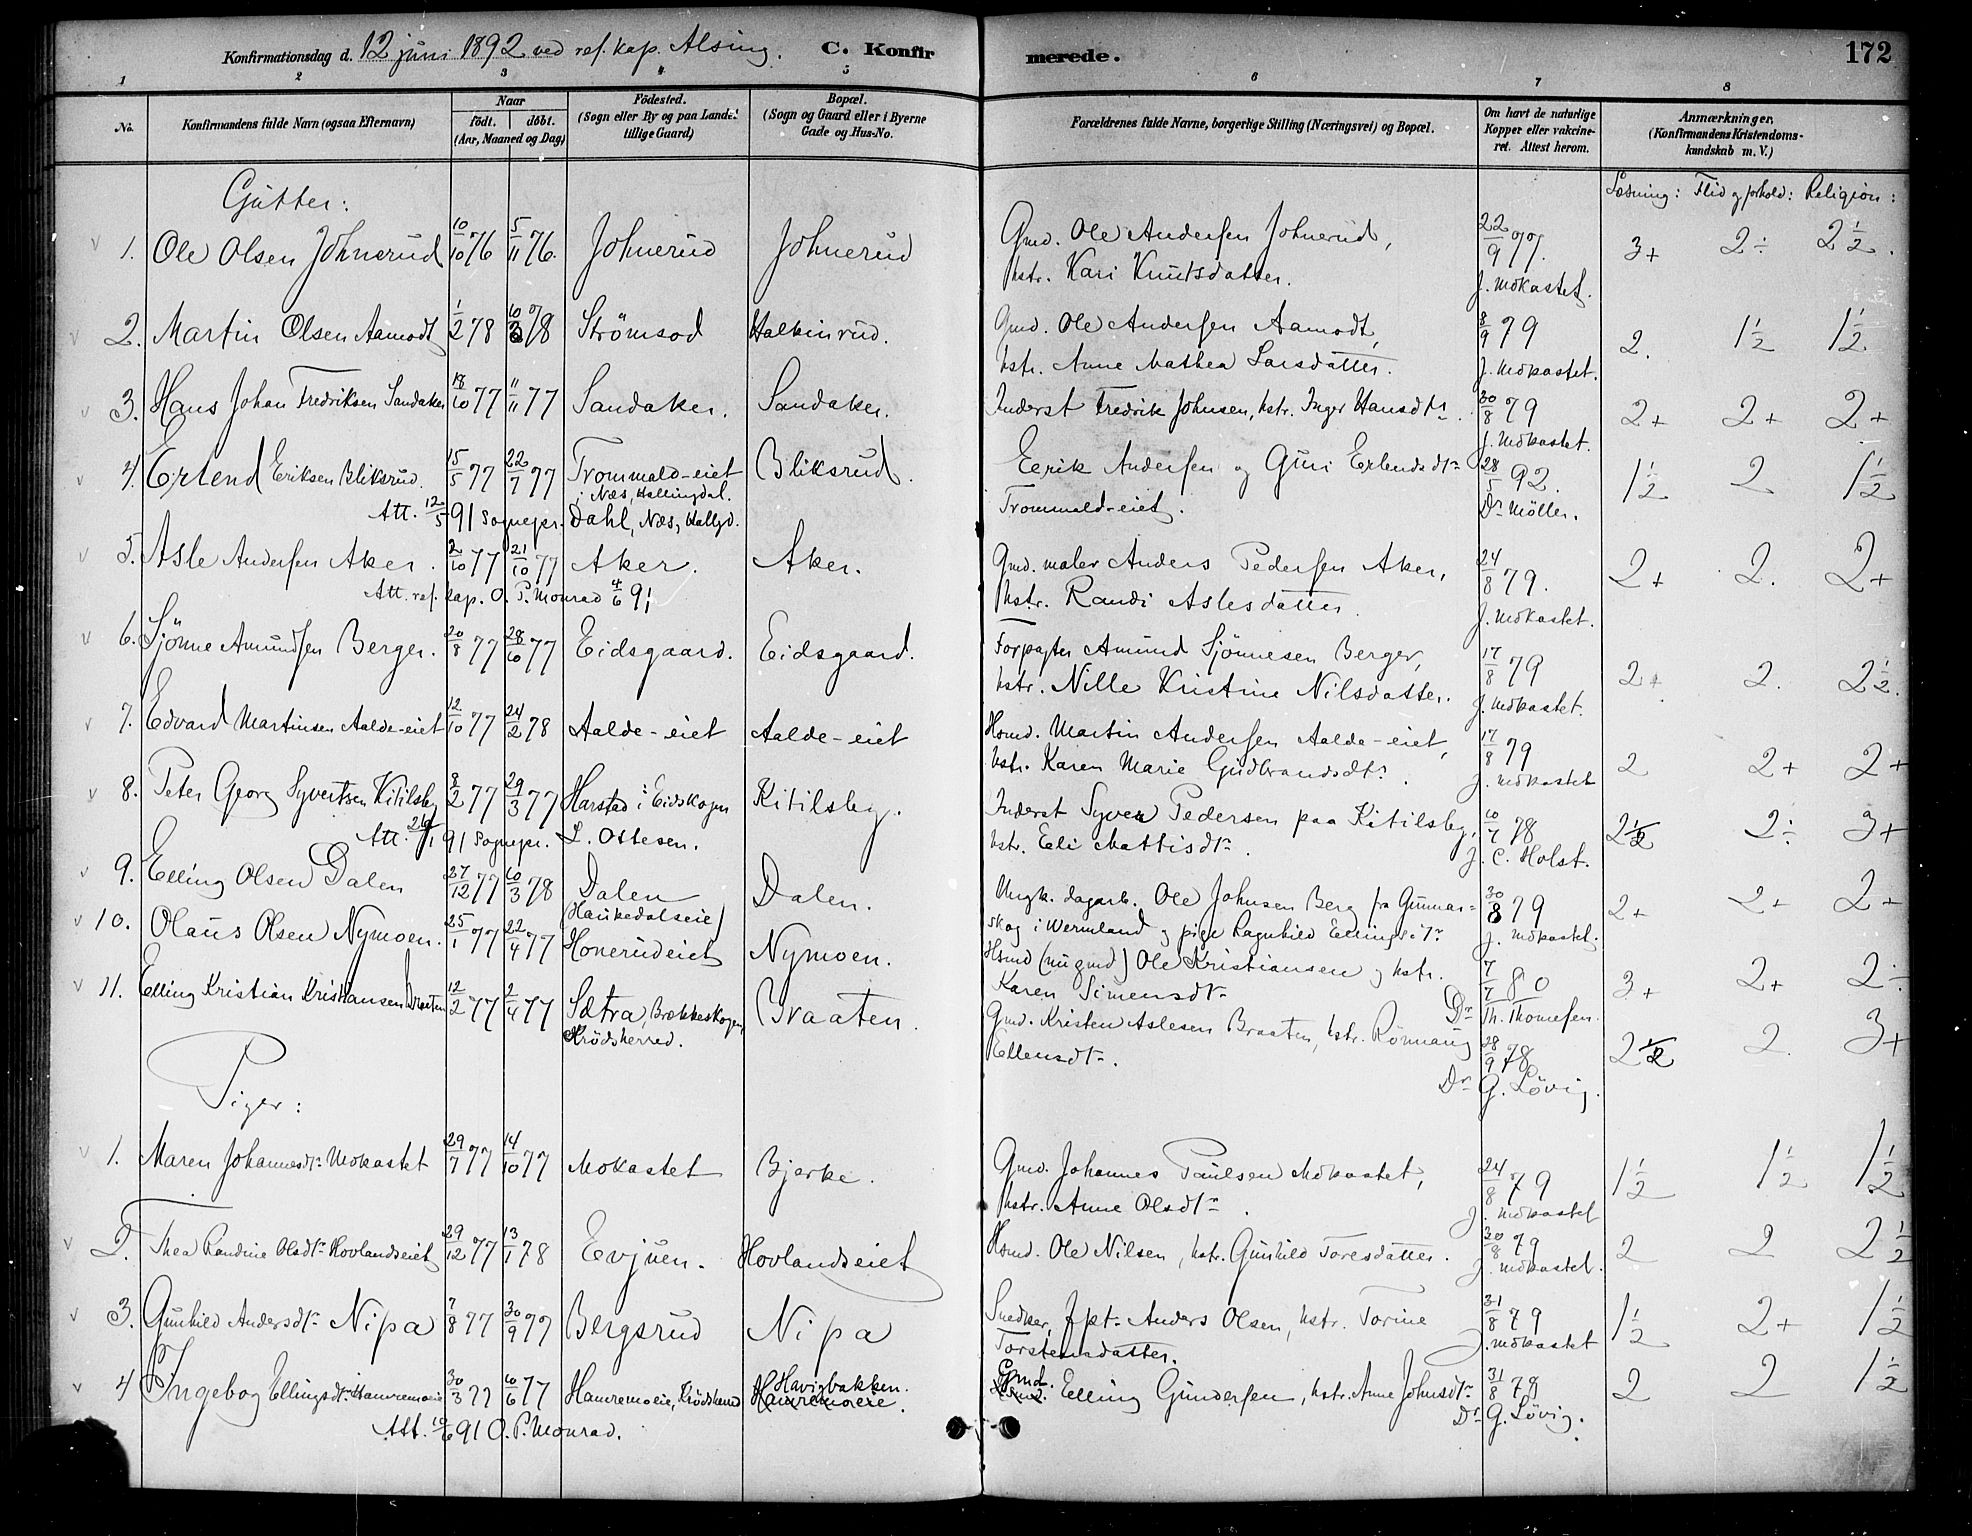 Konfirmationsdag d. 12 juni 1892 ved res. kap. Alsing. C. Konfirmerede. 172
1 2 3 4 5 6 7 8
No.
Konfirmandens fulde Navn (ogsaa Efternavn)
Naar
født. døbt.
(Aar, Maaned og Dag)
Fødested.
(Sogn eller By og paa Landet tillige Gaard)
Bopæl.
(Sogn og Gaard eller i Byerne Gade og Hus-No.
Forældrenes fulde Navne, borgerlige Stilling (Næringsvei) og Bopæl.
Om havt de naturlige Kopper eller vakcineret. Attest herom.
Anmærkninger.
(Konfirmandens Kristendomskundskab m. V.)
Læsning: Flid og forhold: Religion:
Gutter:
1. Ole Olsen Johnerud 10/10 76 5/11 76. Johnerud Johnerud Gmd. Ole Andersen Johnerud, 22/9 77. 3+ 2÷ 2 1/2.
hstr. Kari Knutsdatter. J. Mokastet.
2. Martin Olsen Aamodt 1/2 78 10/3 78 Strömsod Halkinrud. Gmd. Ole Andersen Aamodt, 8/9 79 2. 1 1/2 1 1/2
hstr. Anne Mathea Larsdatter. J. Mokastet.
3. Hans Johan Fredriksen Sandaker 18/10 77 11/11 77 Sandaker. Sandaker. Inderst Fredrik Johnsen, hstr. Inger Hansdtr. 30/8 79 2+ 2+ 2+
J. Mokastet.
4. Erlend Eriksen Bliksrud. 15/5 77 22/7 77 Trommald-eiet Bliksrud. Eerik Andersen og Guri Erlendsdtr 28/5 92. 1 1/2 2 1 1/2
i Næs, Hallingdal. Trommald-eiet. Dr Möller.
Att. 12/5 91 Sognepr. Dahl, Næs, Hallgd.
5. Asle Andersen Aker. 2/10 77 21/10 77 Aker. Aker. Gmd. maler Anders Pedersen Aker, 24/8 79. 2+ 2. 2+
Att. res. kap. O. P. Monrad 4/6 91 hstr. Randi Aslesdatter. J. Mokastet.
6. Sjönne Amundsen Berger. 20/8 77 28/10 77 Eidsgaard. Eidsgaard. Forpagter Amund Sjönnesen Berger, 17/8 79 2+ 2. 2 1/2.
hstr. Nille Kristine Nilsdatter. J. Mokastet.
7. Edvard Martinsen Aalde-eiet 12/10 77 24/2 78 Aalde-eiet Aalde-eiet Hsmd. Martin Andersen Aalde-eiet, 17/8 79 2 2+ 2+
hstr. Karen Marie Gudbrandsdtr. J. Mokastet
8. Peter Georg Syvertsen Kitilsby 8/2 77 29/3 77 Harstad i Eidskogen Kitilsby. Inderst Syver Pedersen paa Kitilsby, 10/7 78 2 1/2 2÷ 3+
Att. 26/1 91 Sognepr. L. Ottesen. hstr. Eeli Mattisdtr. J. C. Holst.
9. Elling Olsen Dalen 27/12 77 10/3 78 Dalen Dalen. Ungk. dagarb. Ole Johnsen Berg fra Gunnar- 30/8 79 2+ 2+ 2+
(Haukedalseie) skog i Wermland og pige Ragnhild Ellingsdtr J. Mokastet.
10. Olaus Olsen Nymoen. 25/1 77 22/4 77 Honerudeiet Nymoen. Hsmd (nu gmd) Ole Kristiansen og hstr. 7/7 80 3+ 2+ 2÷
Karen Simensdtr Dr Th. Thomesen.
11. Elling Kristian Kristiansen Braaten 12/2 77 2/4 77 Sætra, Brekkeskogen, Braaten. Gmd. Kristen Aslesen Braaten, hstr. Rönnaug 28/9 78 2 1/2 2. 3+
Krödsherred. Ellensdtr. Dr G. Lövig.
Piger:
1. Maren Johannesdtr Mokastet 29/7 77 14/10 77 Mokastet Bjerke. Gmd. Johannes Paulsen Mokastet, 24/8 79 1 1/2 1 1/2 1 1/2
hstr. Anne Olsdtr. J. Mokastet
2. Thea Randine Olsdtr Hovlandseiet 29/12 77 13/1 78 Evjuen. Hovlandseiet Hsmd. Ole Nilsen, hstr. Gunhild Toresdatter. 30/8 79 2 2 2 1/2
J. Mokastet.
3. Gunhild Andersdtr Nipa 7/8 77 30/9 77 Bergsrud Nipa Snedker, fpt. Anders Olsen, hstr. Torine 31/8 79 1 1/2 2+ 1 1/2
Torstensdatter. J. Mokastet
4 Ingeborg Ellingsdtr Hamremoeie 30/3 77 10/6 77 Hamremoeie, Krödsherred Havigbakken. Gmd. Elling Gundersen, hstr. Anne Johnsdtr 31/8 78 2 2 1 1/2
Hamremoeie. Dr G. Lövig.
Att. 10/6 91 O. P. Monrad.